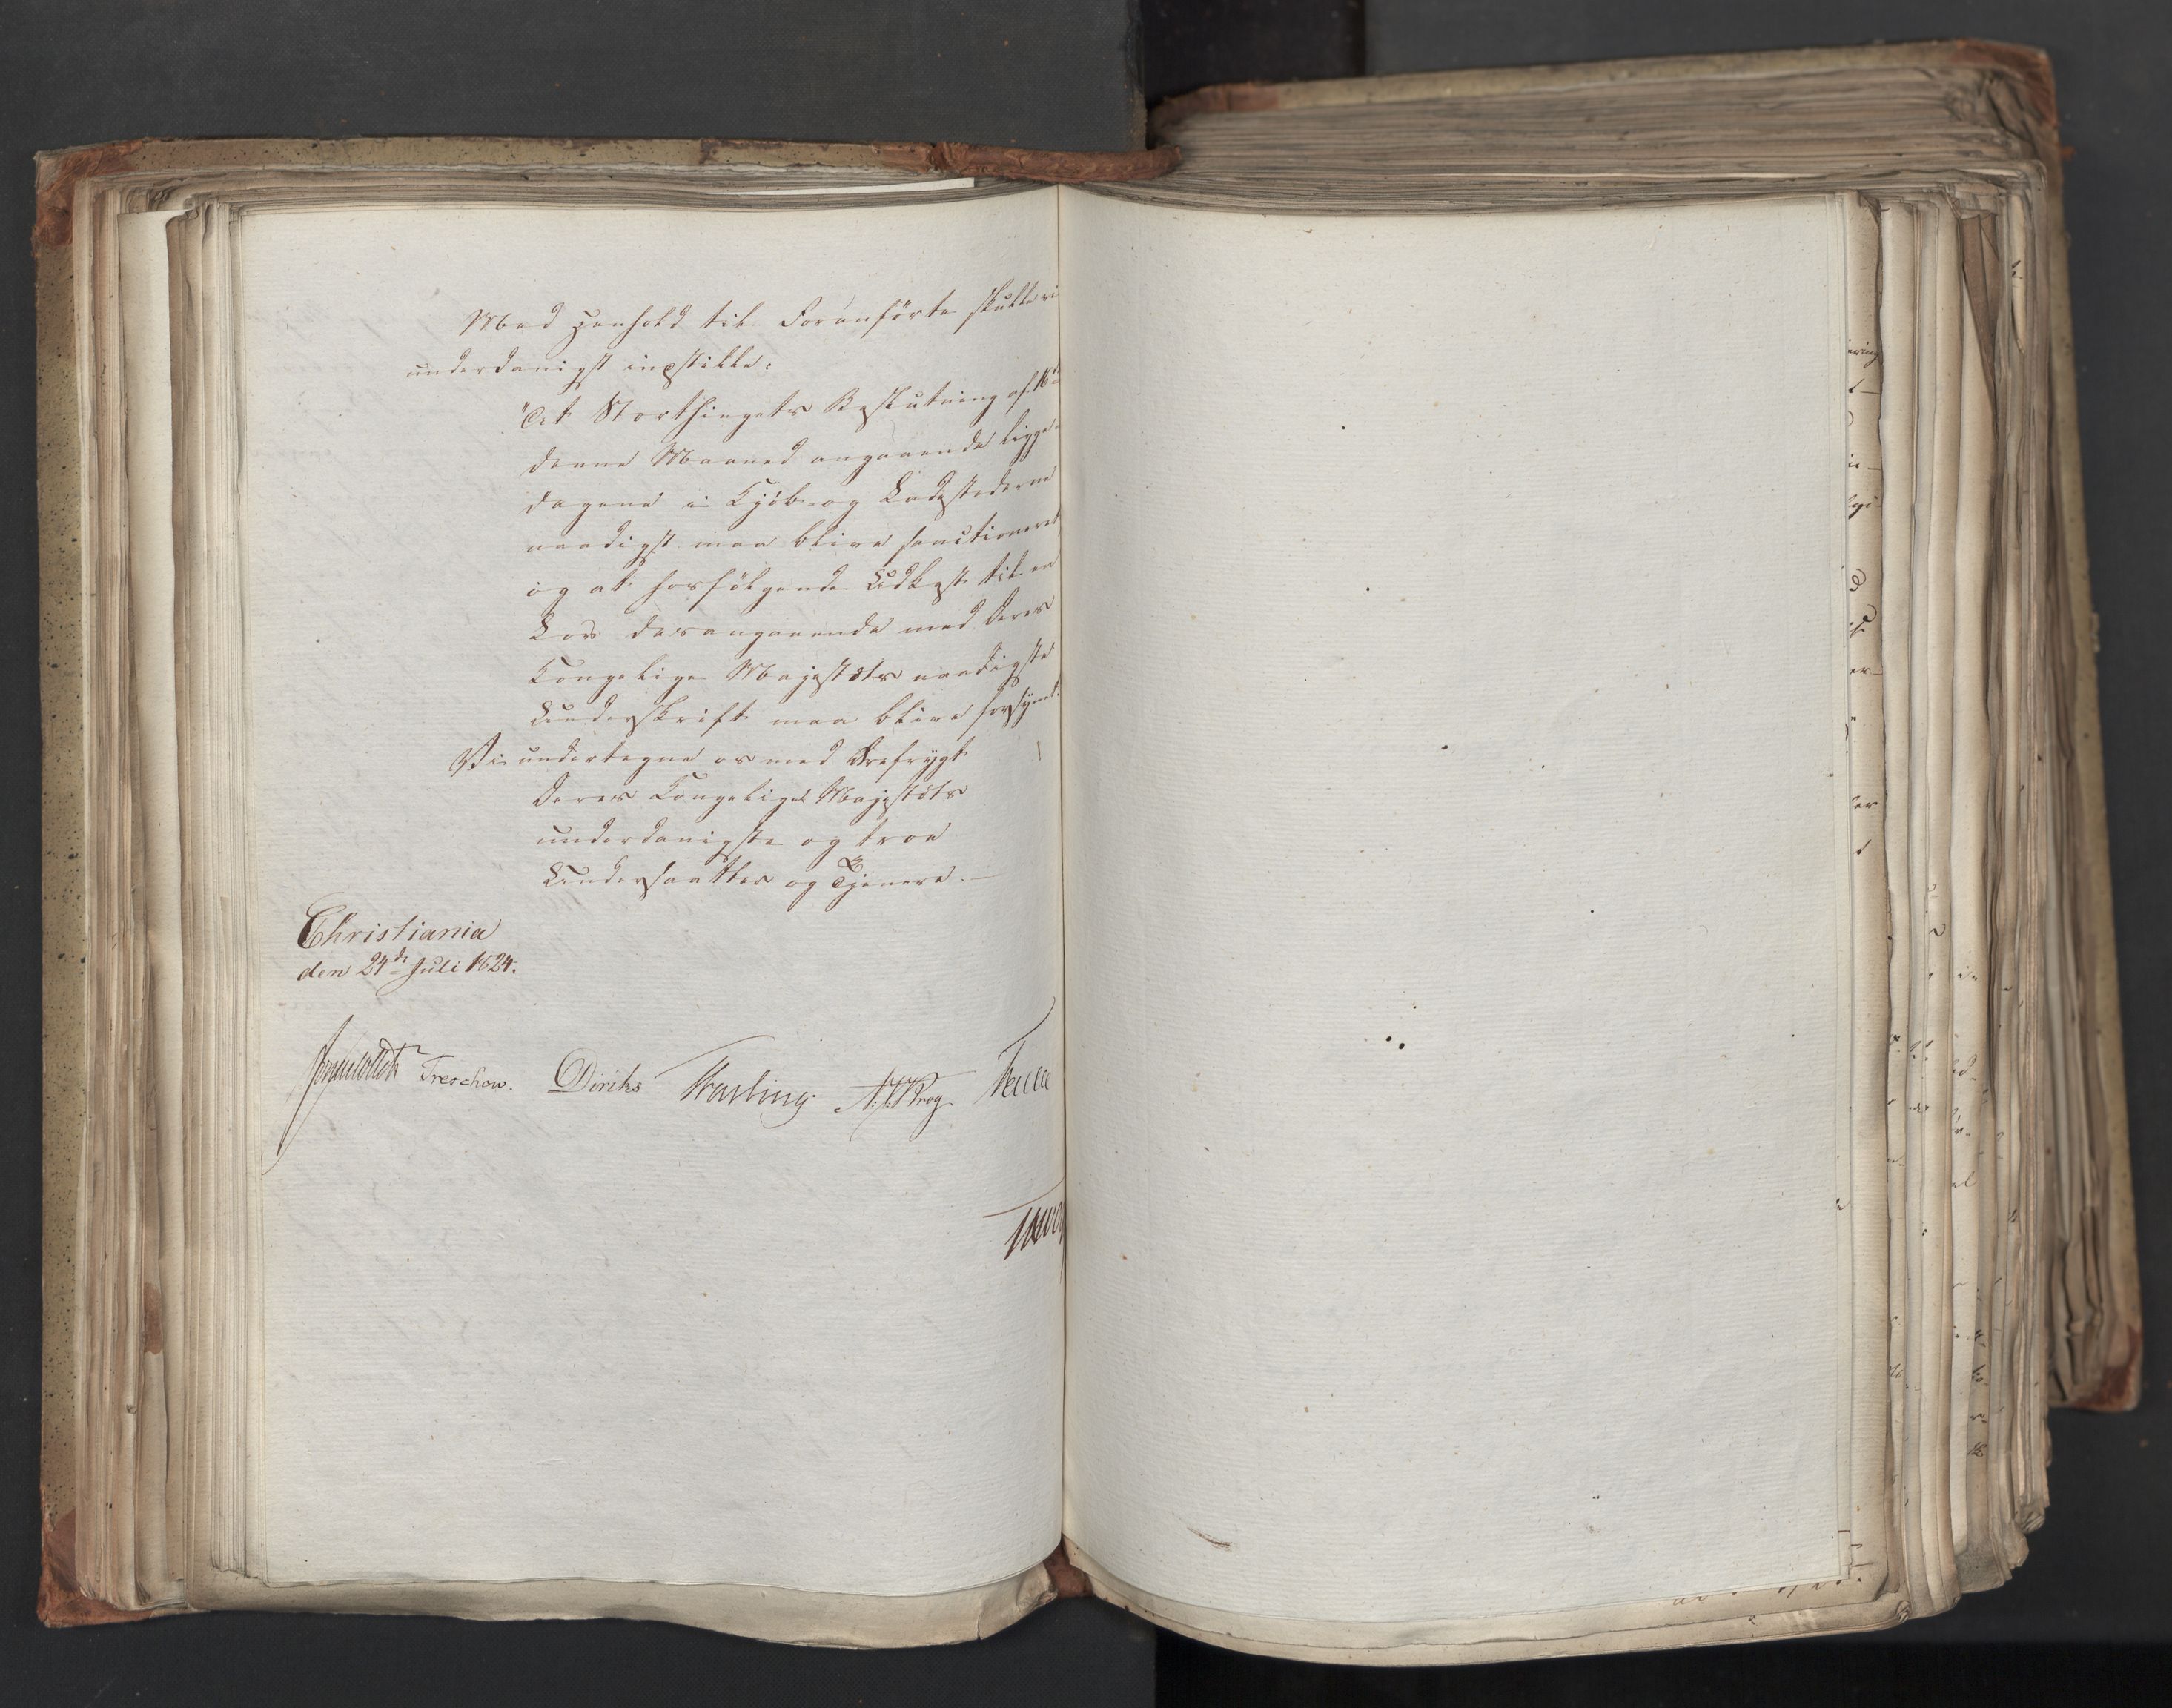 Med Henhold til Foranförte skulle vi
underdanigst indstille:
"At Storthingets Beslutning af 16de
denne Maaned angaaende Ligge-
dagene i Kjöb- og Ladestederne
naadigst maa blive sanctioneret
og at hosfölgende Udkast til en
Lov derangaaende med Deres
Kongelige Majestæts naadigste
Underskrift maa blive forsynet.
Vi undertegne os med Ærefrygt
Deres Kongelige Majestæts
underdanigste og troe
Undersaatter og Tjenere.—
Christiania
den 24de Juli 1824.
Treschow. Diriks A: Krog